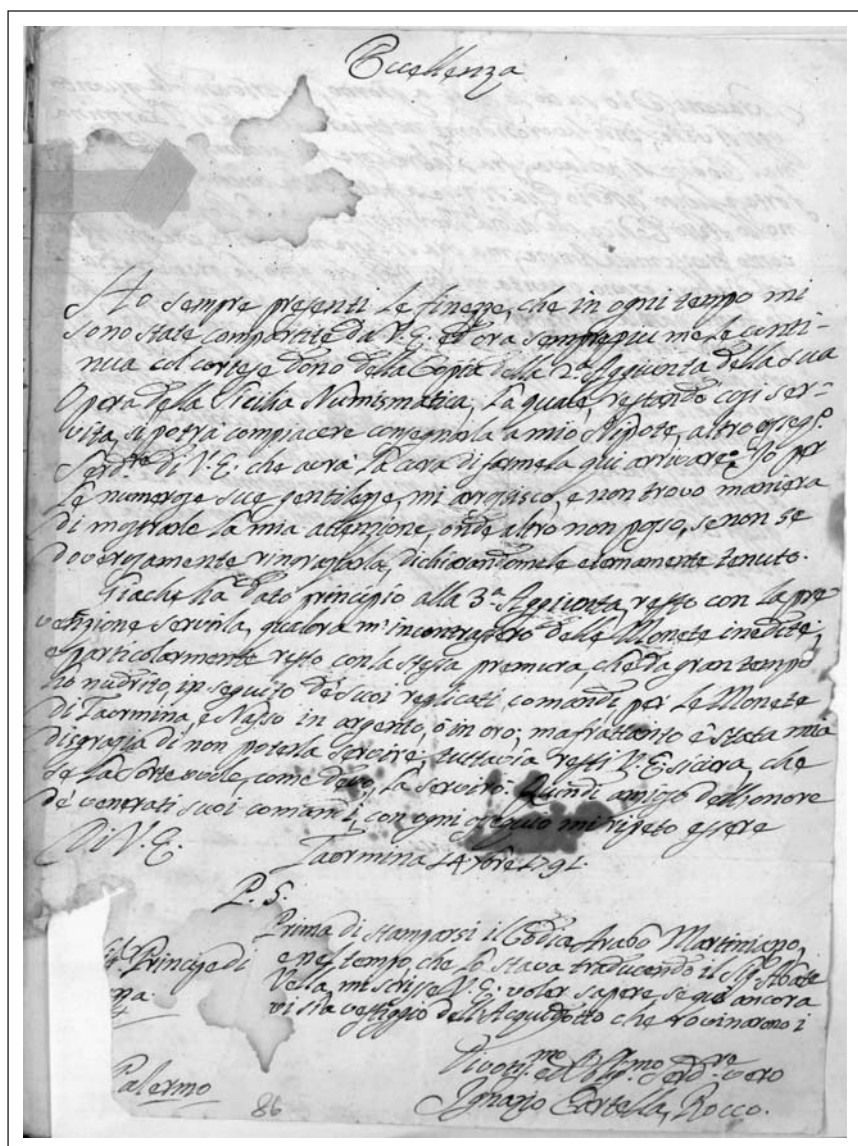 Eccellenza
Ho sempre presenti le finezze, che in ogni tempo mi
sono state compartite da V. E. ed ora sempre piu me le conti-
nua col cortese dono della Copia della 2.ª Aggiunta della sua
Opera della Sicilia Numismatica, la quale, restando cosi ser-
vita, si potrà compiacere consegnarla a mio Nipote, altro osseq.º
Serd.re di V. E. che avrà la cura di farmela qui arrivare. Io per
le numerose sue gentilezze, mi arrosisco, e non trovo maniera
di mostrarle la mia attenzione, onde altro non posso, se non se
doverosamente ringraziarla, dichiarandomele eternamente tenuto.
Giache ha dato principio alla 3.ª Aggiunta, resto con la pre
venzione servirla, qualora m'incontrassero delle Monete inedite;
e particolarmente resto con la stessa premura, che da gran tempo
ho nudrito, in seguito de' suoi replicati comandi per le Monete
di Taormina, e Nasso in argento, ò in oro; ma frattanto è stata mia
disgrazia di non poterla servire; tuttavia resti V. E. sicura, che
se la sorte vuole, come devo, la servirò. Quindi ansioso dell'onore
de' venerati suoi comandi, con ogni ossequio mi ripeto essere
Di V. E.
Taormina 14 1791.
P. S.
Prima di stamparsi il Codice Arabo Martiniano,
e nel tempo, che lo stava traducendo il Sig.r Abate
Vella, mi scrisse V. E. voler sapere, se quì ancora
vi sia vestiggio dell'Acquidotto che rovinarono i
Principe di
Palermo
86
Divotis.mo ed Obblig.mo Serd.re vero
Ignazio Cartella, Rocco.